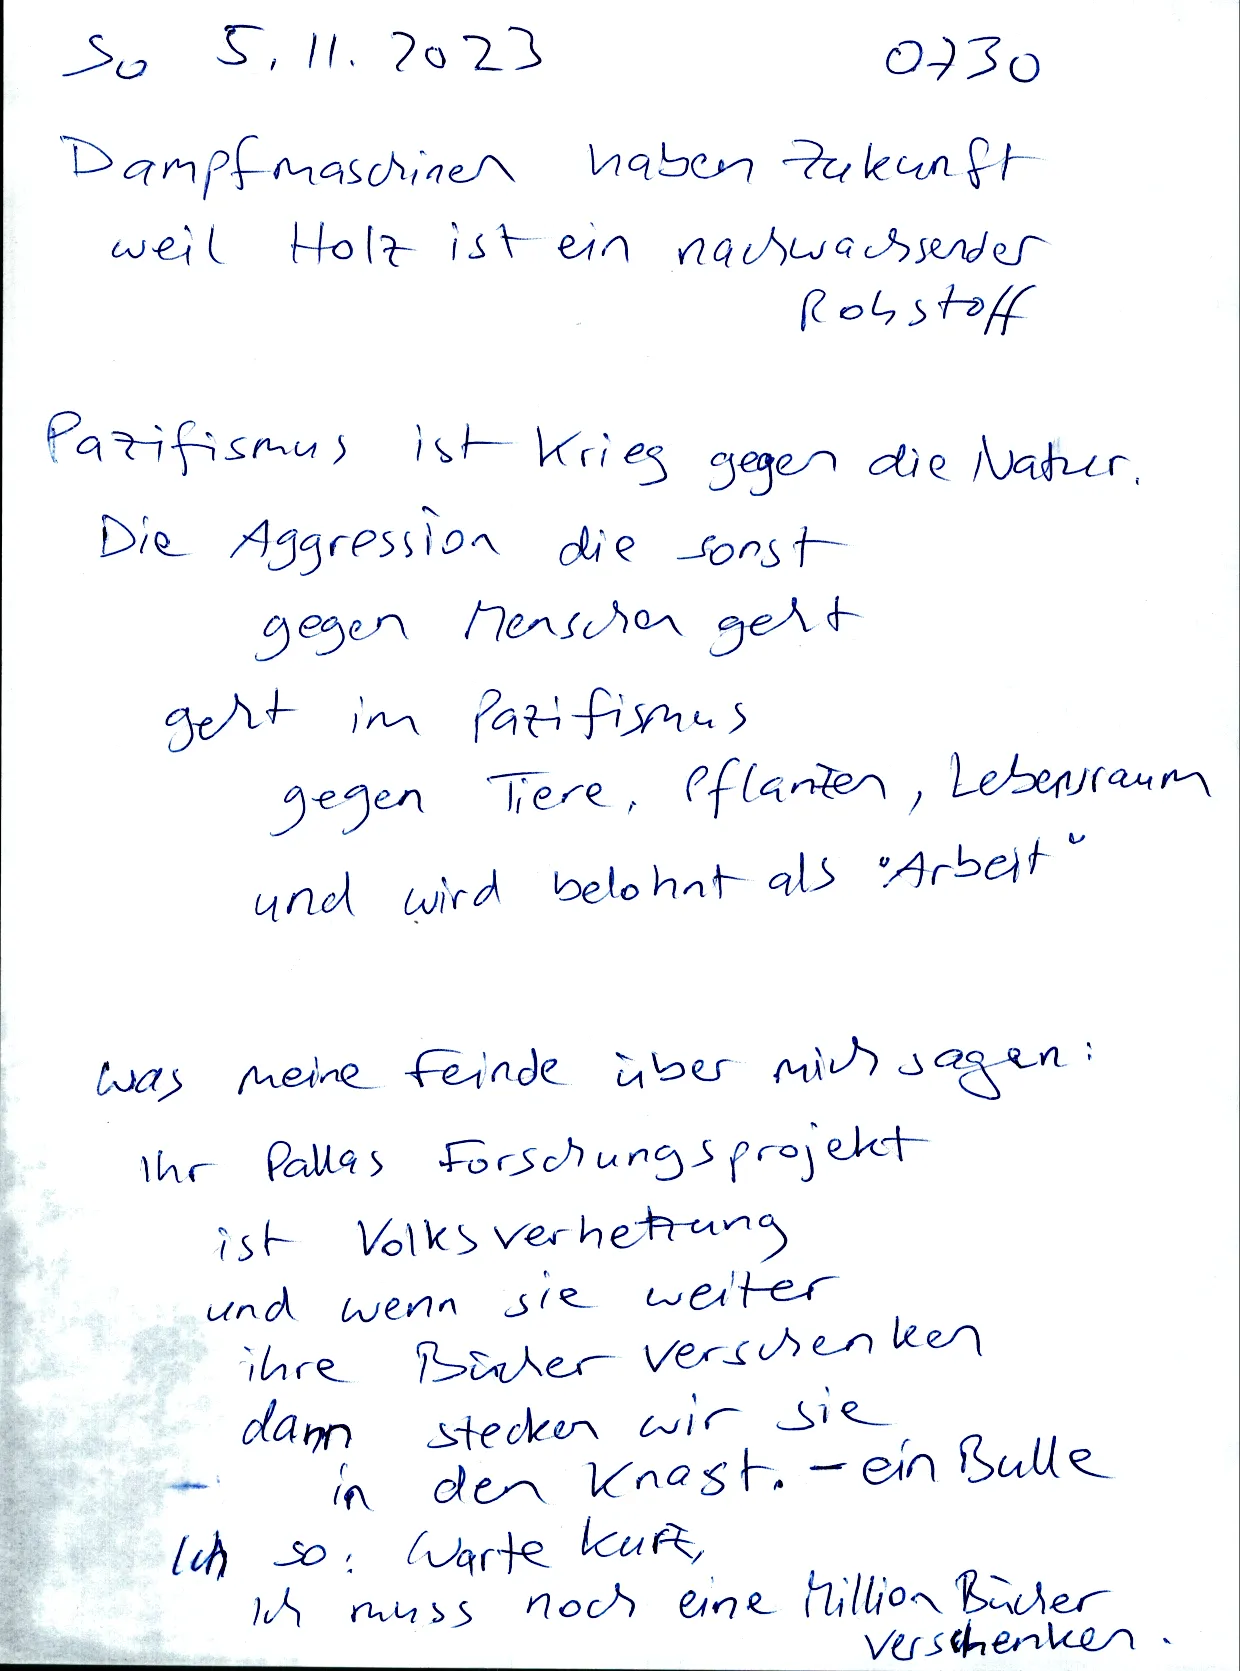 So 5.11.2023 0730
Dampfmaschinen haben Zukunft
weil Holz ist ein nachwachsender
Rohstoff
Pazifismus ist Krieg gegen die Natur.
Die Aggression die sonst
gegen Menschen geht
geht im Pazifismus
gegen Tiere, Pflanzen, Lebensraum
und wird belohnt als "Arbeit"
was meine Feinde über mich sagen:
Ihr Pallas Forschungsprojekt
ist Volksverhetzung
und wenn sie weiter
ihre Bücher verschenken
dann stecken wir sie
in den Knast. - ein Bulle
Ich so: Warte kurz,
Ich muss noch eine Million Bücher
verschenken.